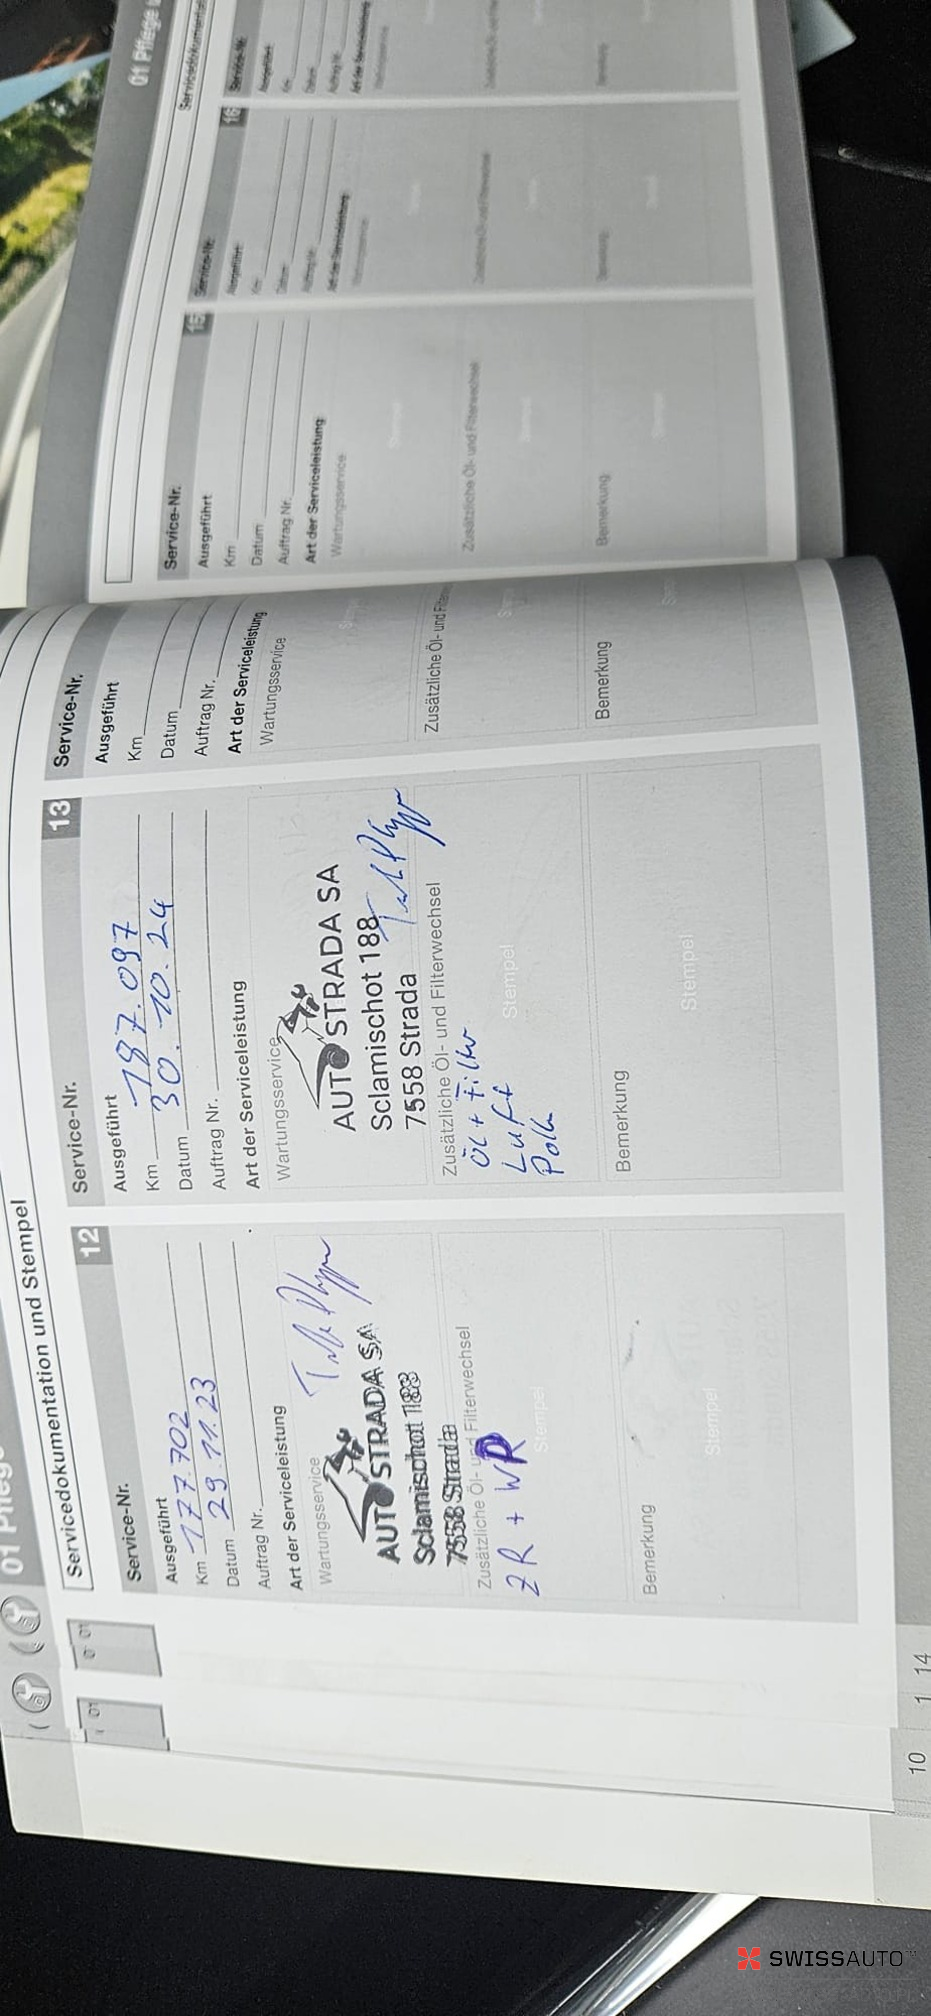 01 Pflege
Servicedokumentation und Stempel
Service-Nr. 12
Ausgeführt
Km 177.702
Datum 29.11.23
Auftrag Nr.
Art der Serviceleistung
Wartungsservice
AUTOSTRADA SA
Sclamischot 188
7558 Strada
Zusätzliche Öl- und Filterwechsel
ZR + WP
Stempel
Bemerkung
Stempel
Service-Nr. 13
Ausgeführt
Km 187.097
Datum 30.10.24
Auftrag Nr.
Art der Serviceleistung
Wartungsservice
AUTOSTRADA SA
Sclamischot 188
7558 Strada
Zusätzliche Öl- und Filterwechsel
Öl + Filter
Luft
Poll
Stempel
Bemerkung
Stempel
Service-Nr.
Ausgeführt
Km
Datum
Auftrag Nr.
Art der Serviceleistung
Wartungsservice
Zusätzliche Öl- und
Bemerkung
10 1 14
01 Pflege
Servicedokumentation
Service-Nr. 15
Ausgeführt
Km
Datum
Auftrag Nr.
Art der Serviceleistung
Wartungsservice
Stempel
Zusätzliche Öl- und Filterwechsel
Stempel
Bemerkung
Stempel
Service-Nr. 16
Ausgeführt
Km
Datum
Auftrag Nr.
Art der Serviceleistung
Wartungsservice
Zusätzliche Öl- und Filterwechsel
Bemerkung
Service-Nr.
Ausgeführt
Km
Datum
Auftrag Nr.
Art der Serviceleistung
SWISSAUTO™